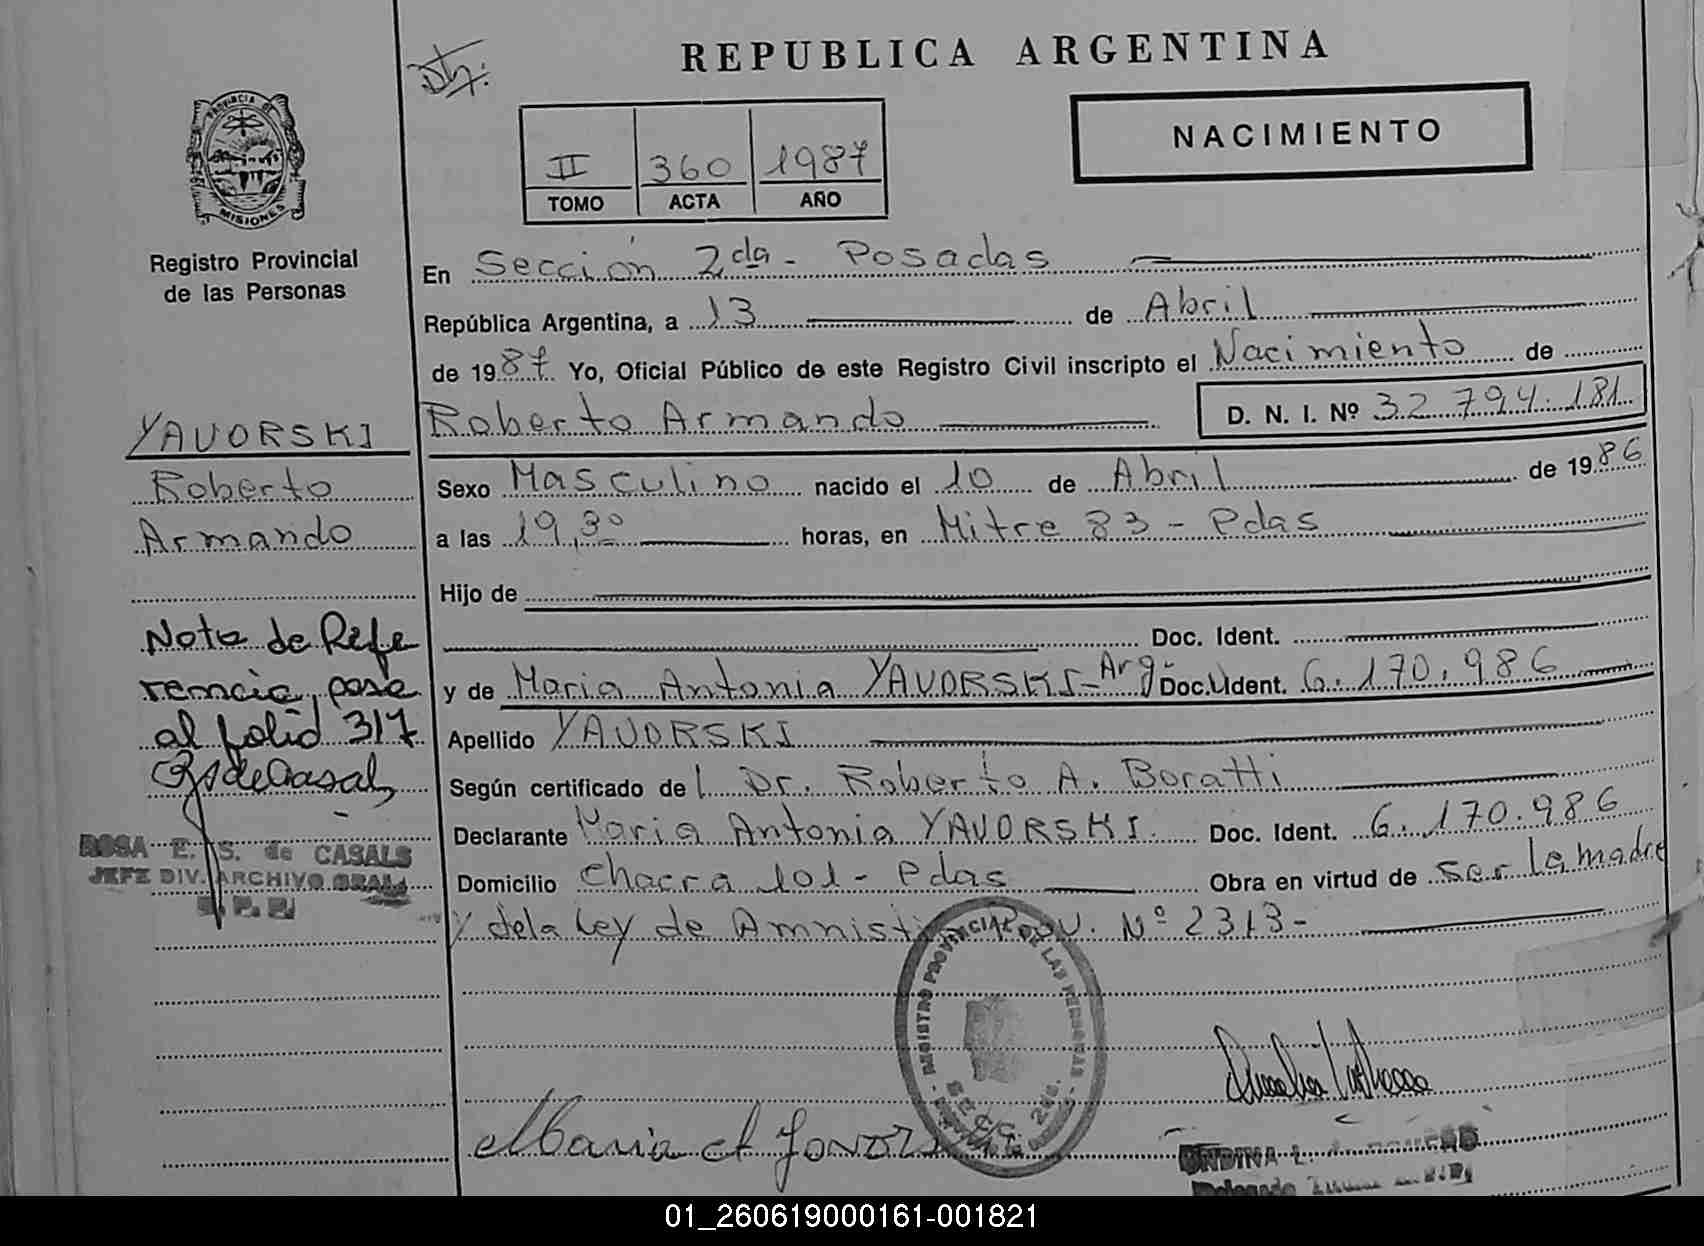 REPUBLICA ARGENTINA
NACIMIENTO
II 360 1987
TOMO ACTA AÑO
PROVINCIA DE
MISIONES
Registro Provincial
de las Personas
En Sección 2da - Posadas
República Argentina, a 13 de Abril
de 1987 Yo, Oficial Público de este Registro Civil inscripto el Nacimiento de
Roberto Armando D. N. I. Nº 32.794.181
YAVORSKI
Roberto
Armando
Sexo Masculino nacido el 10 de Abril de 1986
a las 19,30 horas, en Mitre 83 - Pdas
Hijo de
Doc. Ident.
y de Maria Antonia YAVORSKI - Arg. Doc. Ident. 6.170.986
Apellido YAVORSKI
Según certificado del Dr. Roberto A. Boratti
Declarante Maria Antonia YAVORSKI. Doc. Ident. 6.170.986
Domicilio Chacra 101 - Pdas Obra en virtud de ser la madre
y de la Ley de Amnistia Prov. Nº 2313 -
Nota de Refe
rencia, pase
al folio 317
ROSA E. S. de CASALS
JEFE DIV. ARCHIVO GRAL
REGISTRO PROVINCIAL DE LAS PERSONAS
SECC. 2da.
Maria A Yavors
ONDINA L.
Delegado
01_260619000161-001821